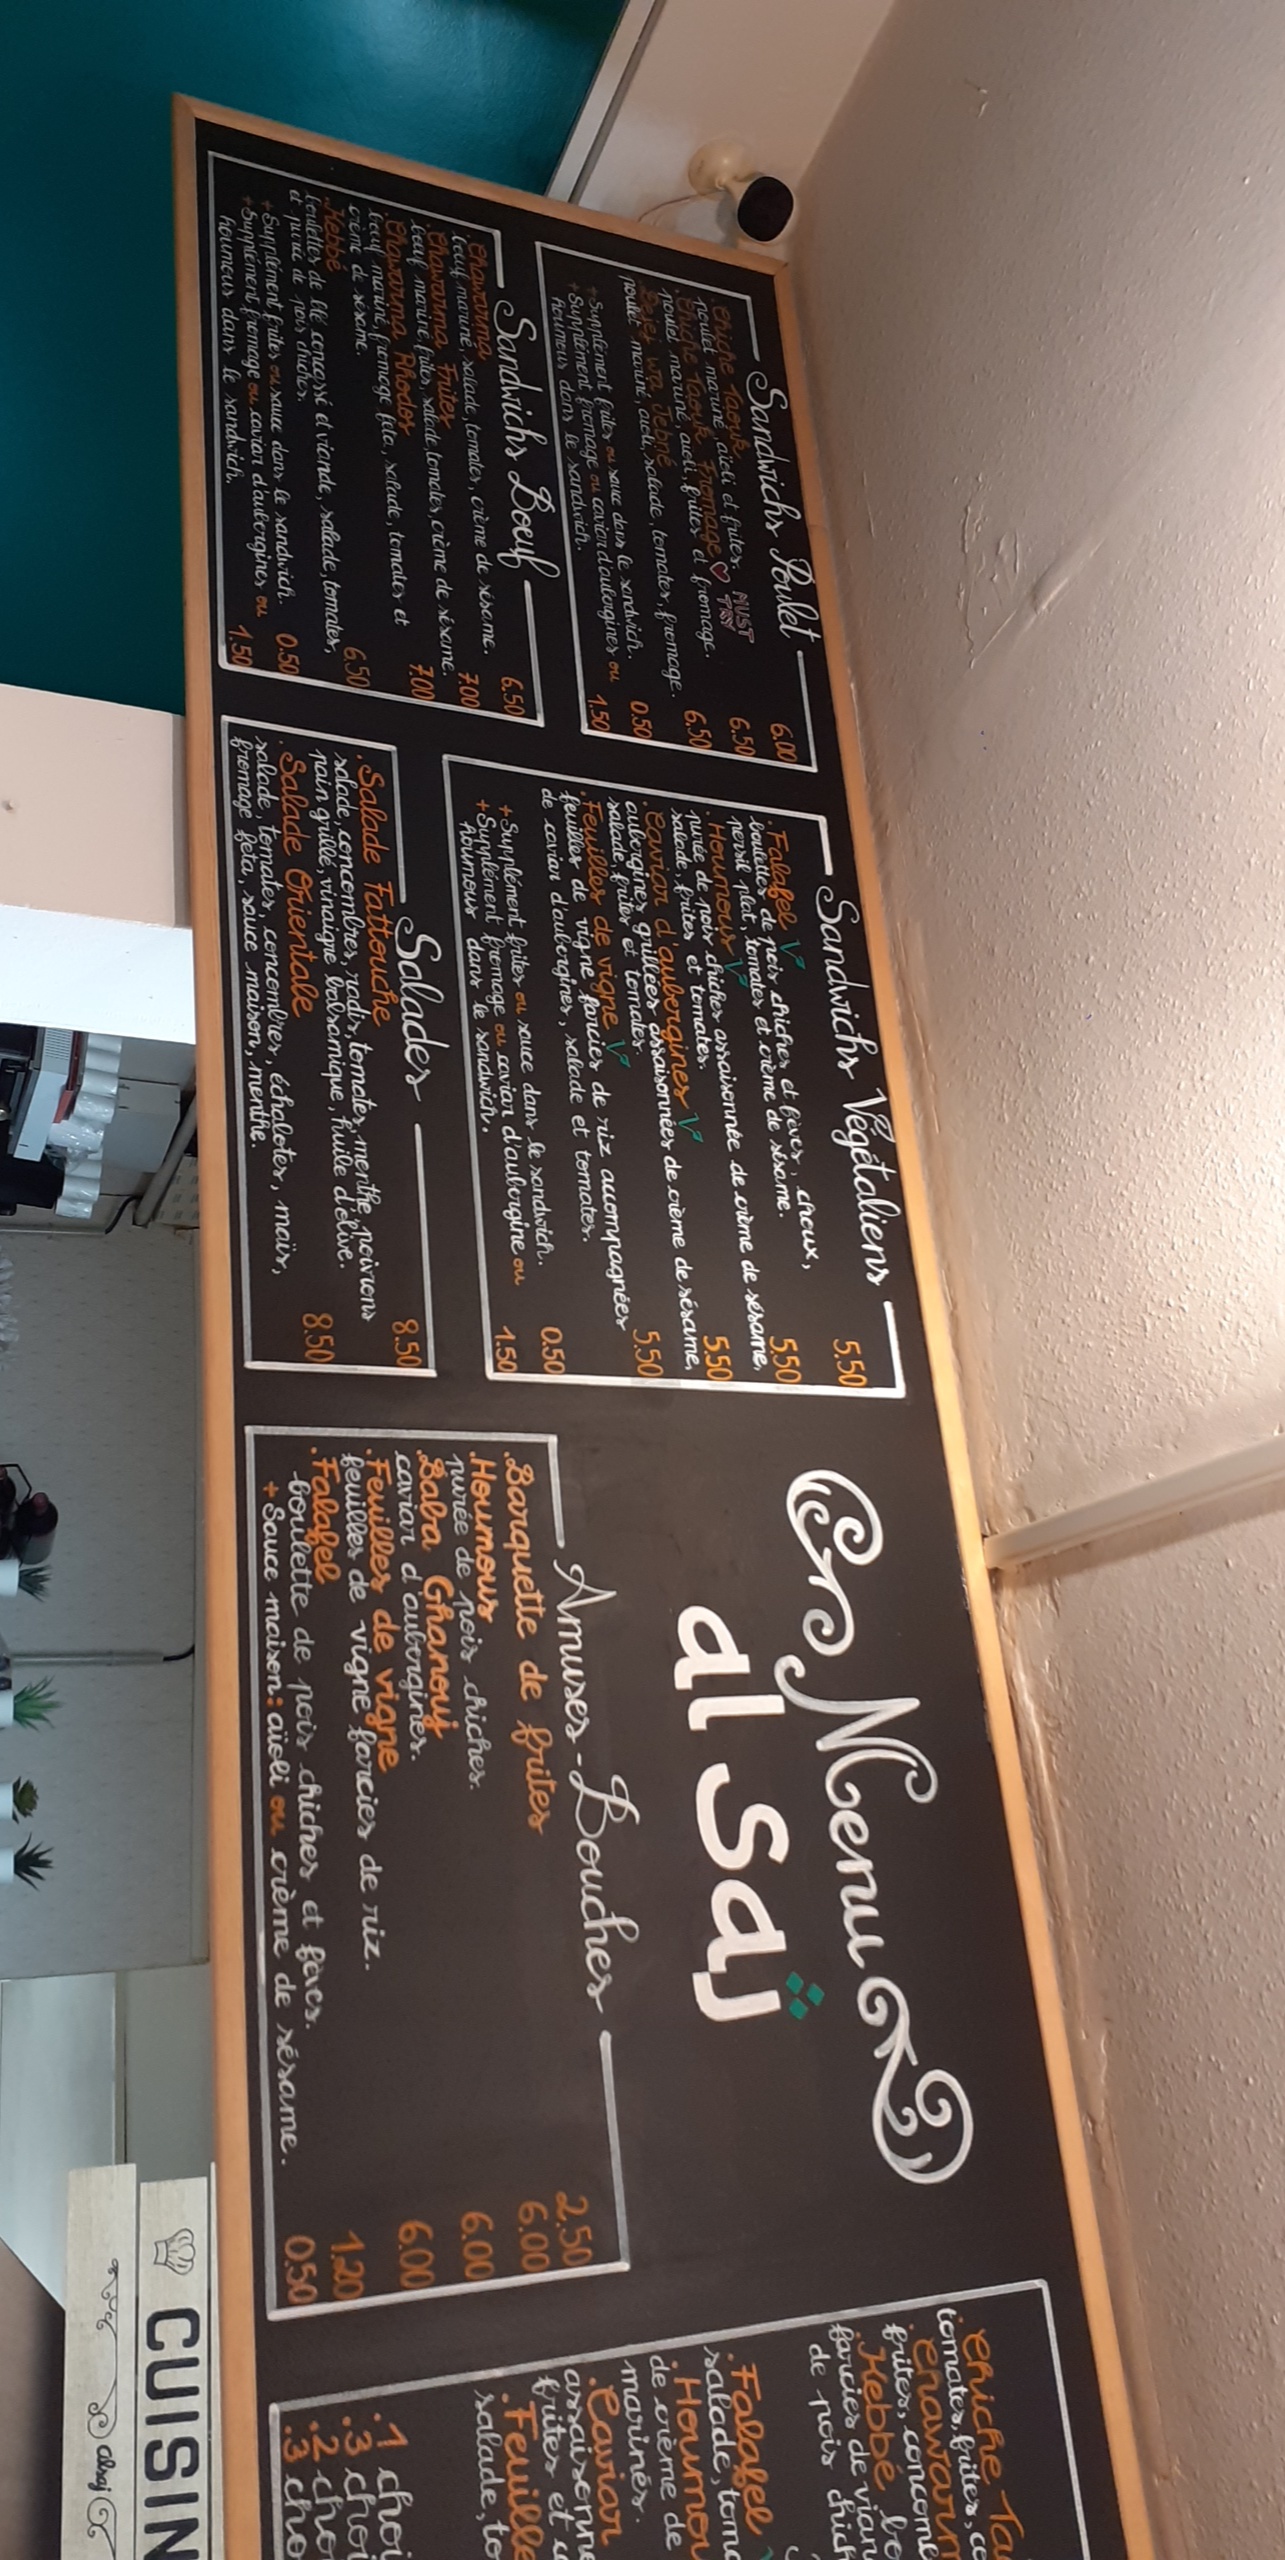 Sandwichs Poulet
.Chiche Taouk 6.00
poulet mariné, aïoli et frites.
.Chiche Taouk Fromage MUST TRY 6.50
poulet mariné, aïoli, frites et fromage.
.Dejej wa Jebné 6.50
poulet mariné, aïoli, salade, tomates, fromage.
+Supplément frites ou sauce dans le sandwich. 0.50
+Supplément fromage ou caviar d'aubergines ou 1.50
houmous dans le sandwich.
Sandwichs Boeuf
.Chawarma 6.50
boeuf mariné, salade, tomates, crème de sésame.
.Chawarma Frites 7.00
boeuf mariné, frites, salade, tomates, crème de sésame.
.Chawarma Rhodos 7.00
boeuf mariné, fromage feta, salade, tomates et
crème de sésame.
.Kebbé 6.50
boulettes de blé concassé et viande, salade, tomates,
et purée de pois chiches.
+Supplément frites ou sauce dans le sandwich. 0.50
+Supplément fromage ou caviar d'aubergines ou 1.50
houmous dans le sandwich.
Sandwichs Végétaliens
.Falafel V 5.50
boulettes de pois chiches et fèves, choux,
persil plat, tomates et crème de sésame.
.Houmous V 5.50
purée de pois chiches assaisonnée de crème de sésame,
salade, frites et tomates.
.Caviar d'aubergines V 5.50
aubergines grillées assaisonnées de crème de sésame,
salade, frites et tomates.
.Feuilles de vigne V 5.50
feuilles de vigne farcies de riz accompagnées
de caviar d'aubergines, salade et tomates.
+Supplément frites ou sauce dans le sandwich. 0.50
+Supplément fromage ou caviar d'aubergine ou 1.50
houmous dans le sandwich.
Salades
.Salade Fattouche 8.50
salade, concombres, radis, tomates, menthe, poivrons
pain grillé, vinaigre balsamique, huile d'olive.
.Salade Orientale 8.50
salade, tomates, concombres, échalotes, maïs,
fromage feta, sauce maison, menthe.
Menu
al saj
Amuses-Bouches
.Barquette de frites 2.50
.Houmous 6.00
purée de pois chiches.
.Baba Ghanouj 6.00
caviar d'aubergines.
.Feuilles de vigne 6.00
feuilles de vigne farcies de riz.
.Falafel 1.20
boulette de pois chiches et fèves.
+Sauce maison: aïoli ou crème de sésame. 0.50
.Chiche Ta
tomates, frites, co
.Chawarm
frites, concom
.Kebbé bo
farcies de vian
de pois chich
.Falafel
salade, toma
.Houmou
de crème de
marinés.
.Caviar
assaisonne
frites et c
.Feuille
salade, to
.1 choi
.3 choi
.2 cho
.3 cho
CUISIN
alsaj